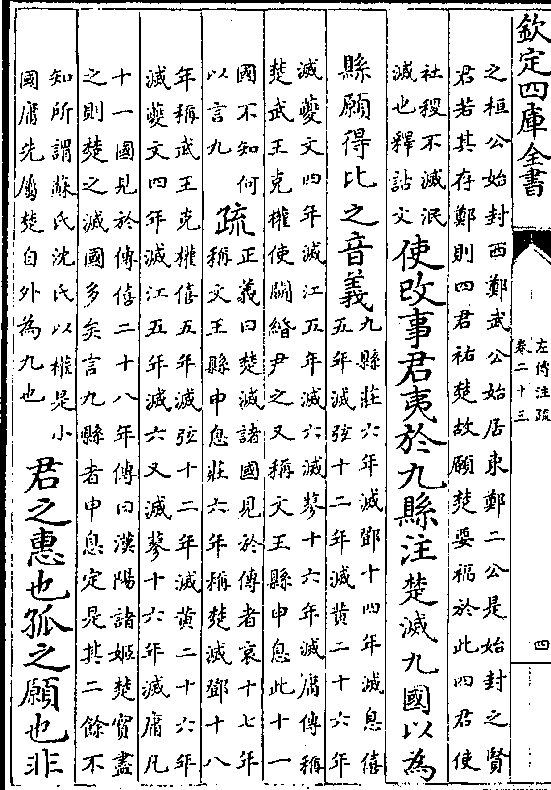 欽定四庫全書
左傳注疏
卷二十三
四
之桓公始封西鄭武公始居東鄭二公是始封之賢
君若其存鄭則四君祐楚故願楚要福於此四君使
社稷不滅泯
滅也釋詁文
使改事君夷於九縣注楚滅九國以為
縣願得比之音義
九縣莊六年滅鄧十四年滅息僖
五年滅弦十二年滅黃二十六年
滅夔文四年滅江五年滅六滅蓼十六年滅庸傳稱
楚武王克權使鬬緡尹之又稱文王縣申息此十一
國不知何
以言九
疏
正義曰楚滅諸國見於傳者哀十七年
稱文王縣申息莊六年稱楚滅鄧十八
年稱武王克權僖五年滅弦十二年滅黃二十六年
滅夔文四年滅江五年滅六又滅蓼十六年滅庸凡
十一國見於傳僖二十八年傳曰漢陽諸姬楚實盡
之則楚之滅國多矣言九縣者申息定是其二餘不
知所謂蘇氏沈氏以權是小
國庸先屬楚自外為九也
君之惠也孤之願也非